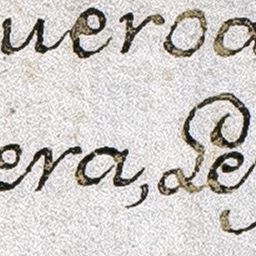 ueroa
era, de